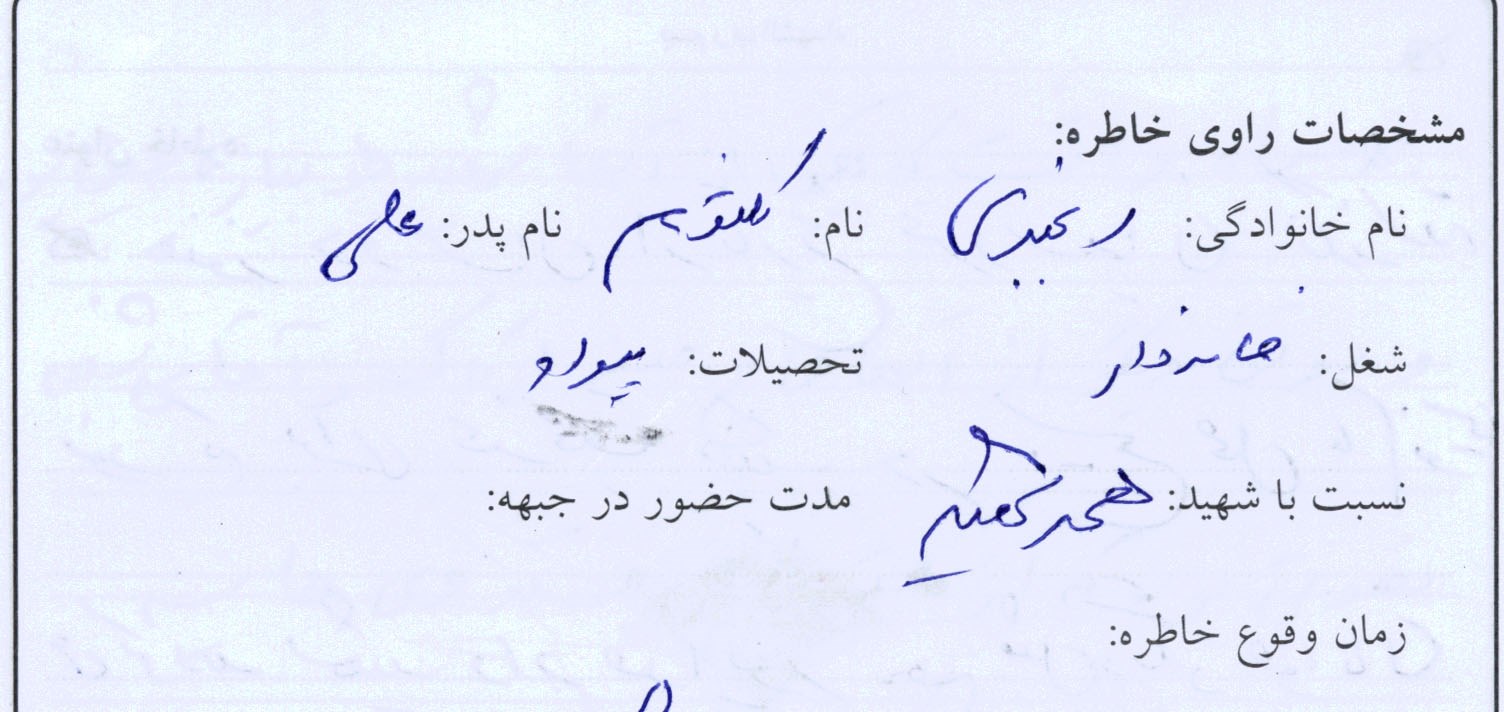 مشخصات راوی خاطره:
نام خانوادگی: رنجبری نام: کلثوم نام پدر: علی
شغل: خانه دار تحصیلات: بیسواد
نسبت با شهید: همسر شهید مدت حضور در جبهه:
زمان وقوع خاطره: